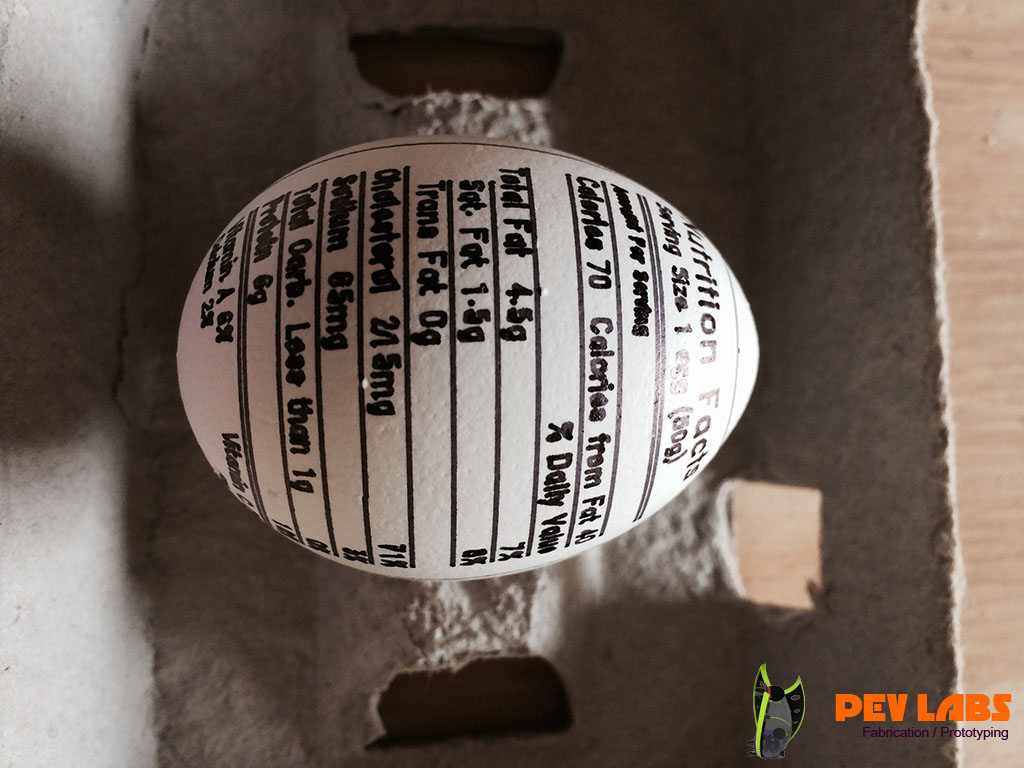 Nutrition Facts
Serving Size 1 egg (50g)
Amount Per Serving
Calories 70 Calories from Fat 40
% Daily Value
Total Fat 4.5g 7%
Sat. Fat 1.5g 8%
Trans Fat 0g
Cholesterol 215mg 71%
Sodium 65mg 3%
Total Carb. Less than 1g
Protein 6g
Vitamin A 6% Vitamin
2%
PEV LABS
Fabrication / Prototyping